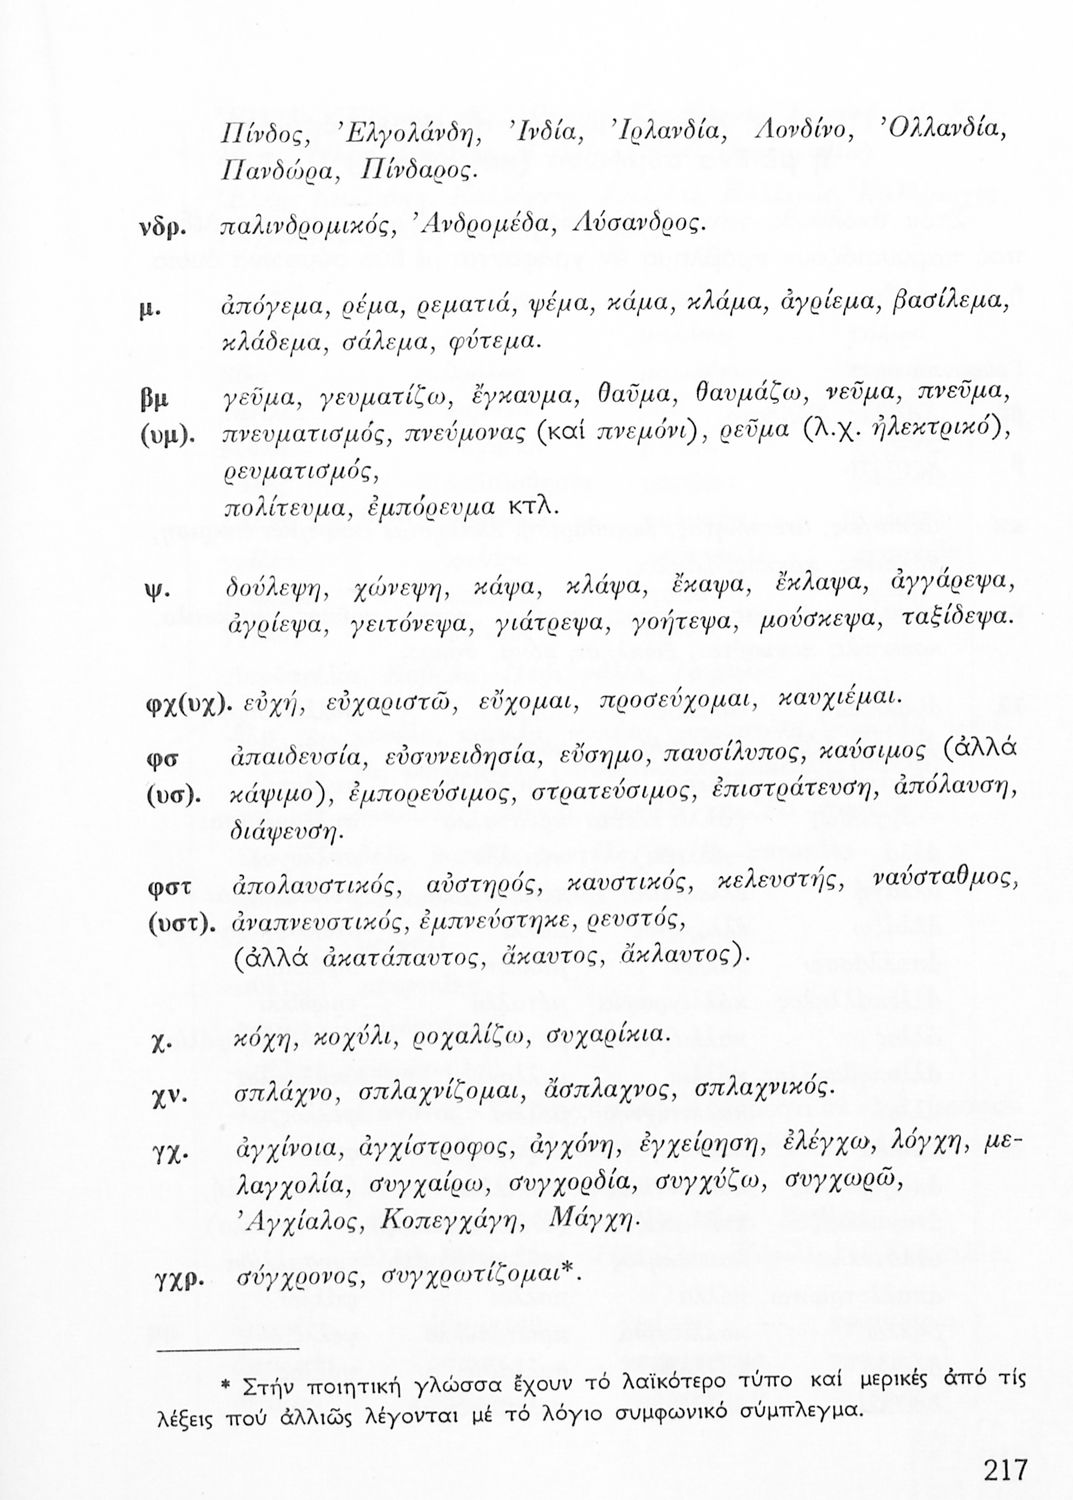 Πίνδος, Ἑλγολάνδη, Ἰνδία, Ἰρλανδία, Λονδίνο, Ὁλλανδία,
Πανδώρα, Πίνδαρος.
νδρ. παλινδρομικός, Ἀνδρομέδα, Λύσανδρος.
μ. ἀπόγεμα, ρέμα, ρεματιά, ψέμα, κάμα, κλάμα, ἀγρίεμα, βασίλεμα,
κλάδεμα, σάλεμα, φύτεμα.
βμ γεῦμα, γευματίζω, ἔγκαυμα, θαῦμα, θαυμάζω, νεῦμα, πνεῦμα,
(υμ). πνευματισμός, πνεύμονας (καί πνεμόνι), ρεῦμα (λ.χ. ἠλεκτρικό),
ρευματισμός,
πολίτευμα, ἐμπόρευμα κτλ.
ψ. δούλεψη, χώνεψη, κάψα, κλάψα, ἔκαψα, ἔκλαψα, ἀγγάρεψα,
ἀγρίεψα, γειτόνεψα, γιάτρεψα, γοήτεψα, μούσκεψα, ταξίδεψα.
φχ(υχ). εὐχή, εὐχαριστῶ, εὔχομαι, προσεύχομαι, καυχιέμαι.
φσ ἀπαιδευσία, εὐσυνειδησία, εὔσημο, παυσίλυπος, καύσιμος (ἀλλά
(υσ). κάψιμο), ἐμπορεύσιμος, στρατεύσιμος, ἐπιστράτευση, ἀπόλαυση,
διάψευση.
φστ ἀπολαυστικός, αὐστηρός, καυστικός, κελευστής, ναύσταθμος,
(υστ). ἀναπνευστικός, ἐμπνεύστηκε, ρευστός,
(ἀλλά ἀκατάπαυτος, ἄκαυτος, ἄκλαυτος).
χ. κόχη, κοχύλι, ροχαλίζω, συχαρίκια.
χν. σπλάχνο, σπλαχνίζομαι, ἄσπλαχνος, σπλαχνικός.
γχ. ἀγχίνοια, ἀγχίστροφος, ἀγχόνη, ἐγχείρηση, ἐλέγχω, λόγχη, με-
λαγχολία, συγχαίρω, συγχορδία, συγχύζω, συγχωρῶ,
Ἀγχίαλος, Κοπεγχάγη, Μάγχη.
γχρ. σύγχρονος, συγχρωτίζομαι*.
* Στήν ποιητική γλώσσα ἔχουν τό λαϊκότερο τύπο καί μερικές ἀπό τίς
λέξεις πού ἀλλιῶς λέγονται μέ τό λόγιο συμφωνικό σύμπλεγμα.
217